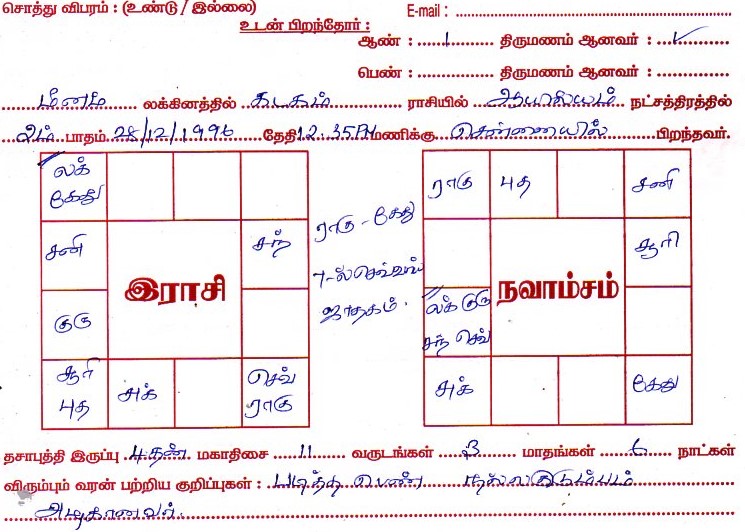 சொத்து விபரம் : (உண்டு / இல்லை) E-mail :
உடன் பிறந்தோர் :
ஆண் : 1 திருமணம் ஆனவர் : ✓
பெண் : திருமணம் ஆனவர் :
மீனம் லக்கினத்தில் கடகம் ராசியில் ஆயில்யம் நட்சத்திரத்தில்
2ம் பாதம் 28/12/1996 தேதி 12.35PM மணிக்கு சென்னையில் பிறந்தவர்.
லக் கேது
சனி சந்
குரு
இராசி
சூரி புத சுக் செவ் ராகு
ராகு - கேது
7-ல் செவ்வாய்
ஜாதகம்.
ராகு புத சனி
சூரி
நவாம்சம்
லக் குரு
சந் செவ்
சுக் கேது
தசாபுத்தி இருப்பு புதன் மகாதிசை 11 வருடங்கள் 3 மாதங்கள் 6 நாட்கள்
விரும்பும் வரன் பற்றிய குறிப்புகள் : படித்த பெண் நல்லகுடும்பம்
அழகானவர்.